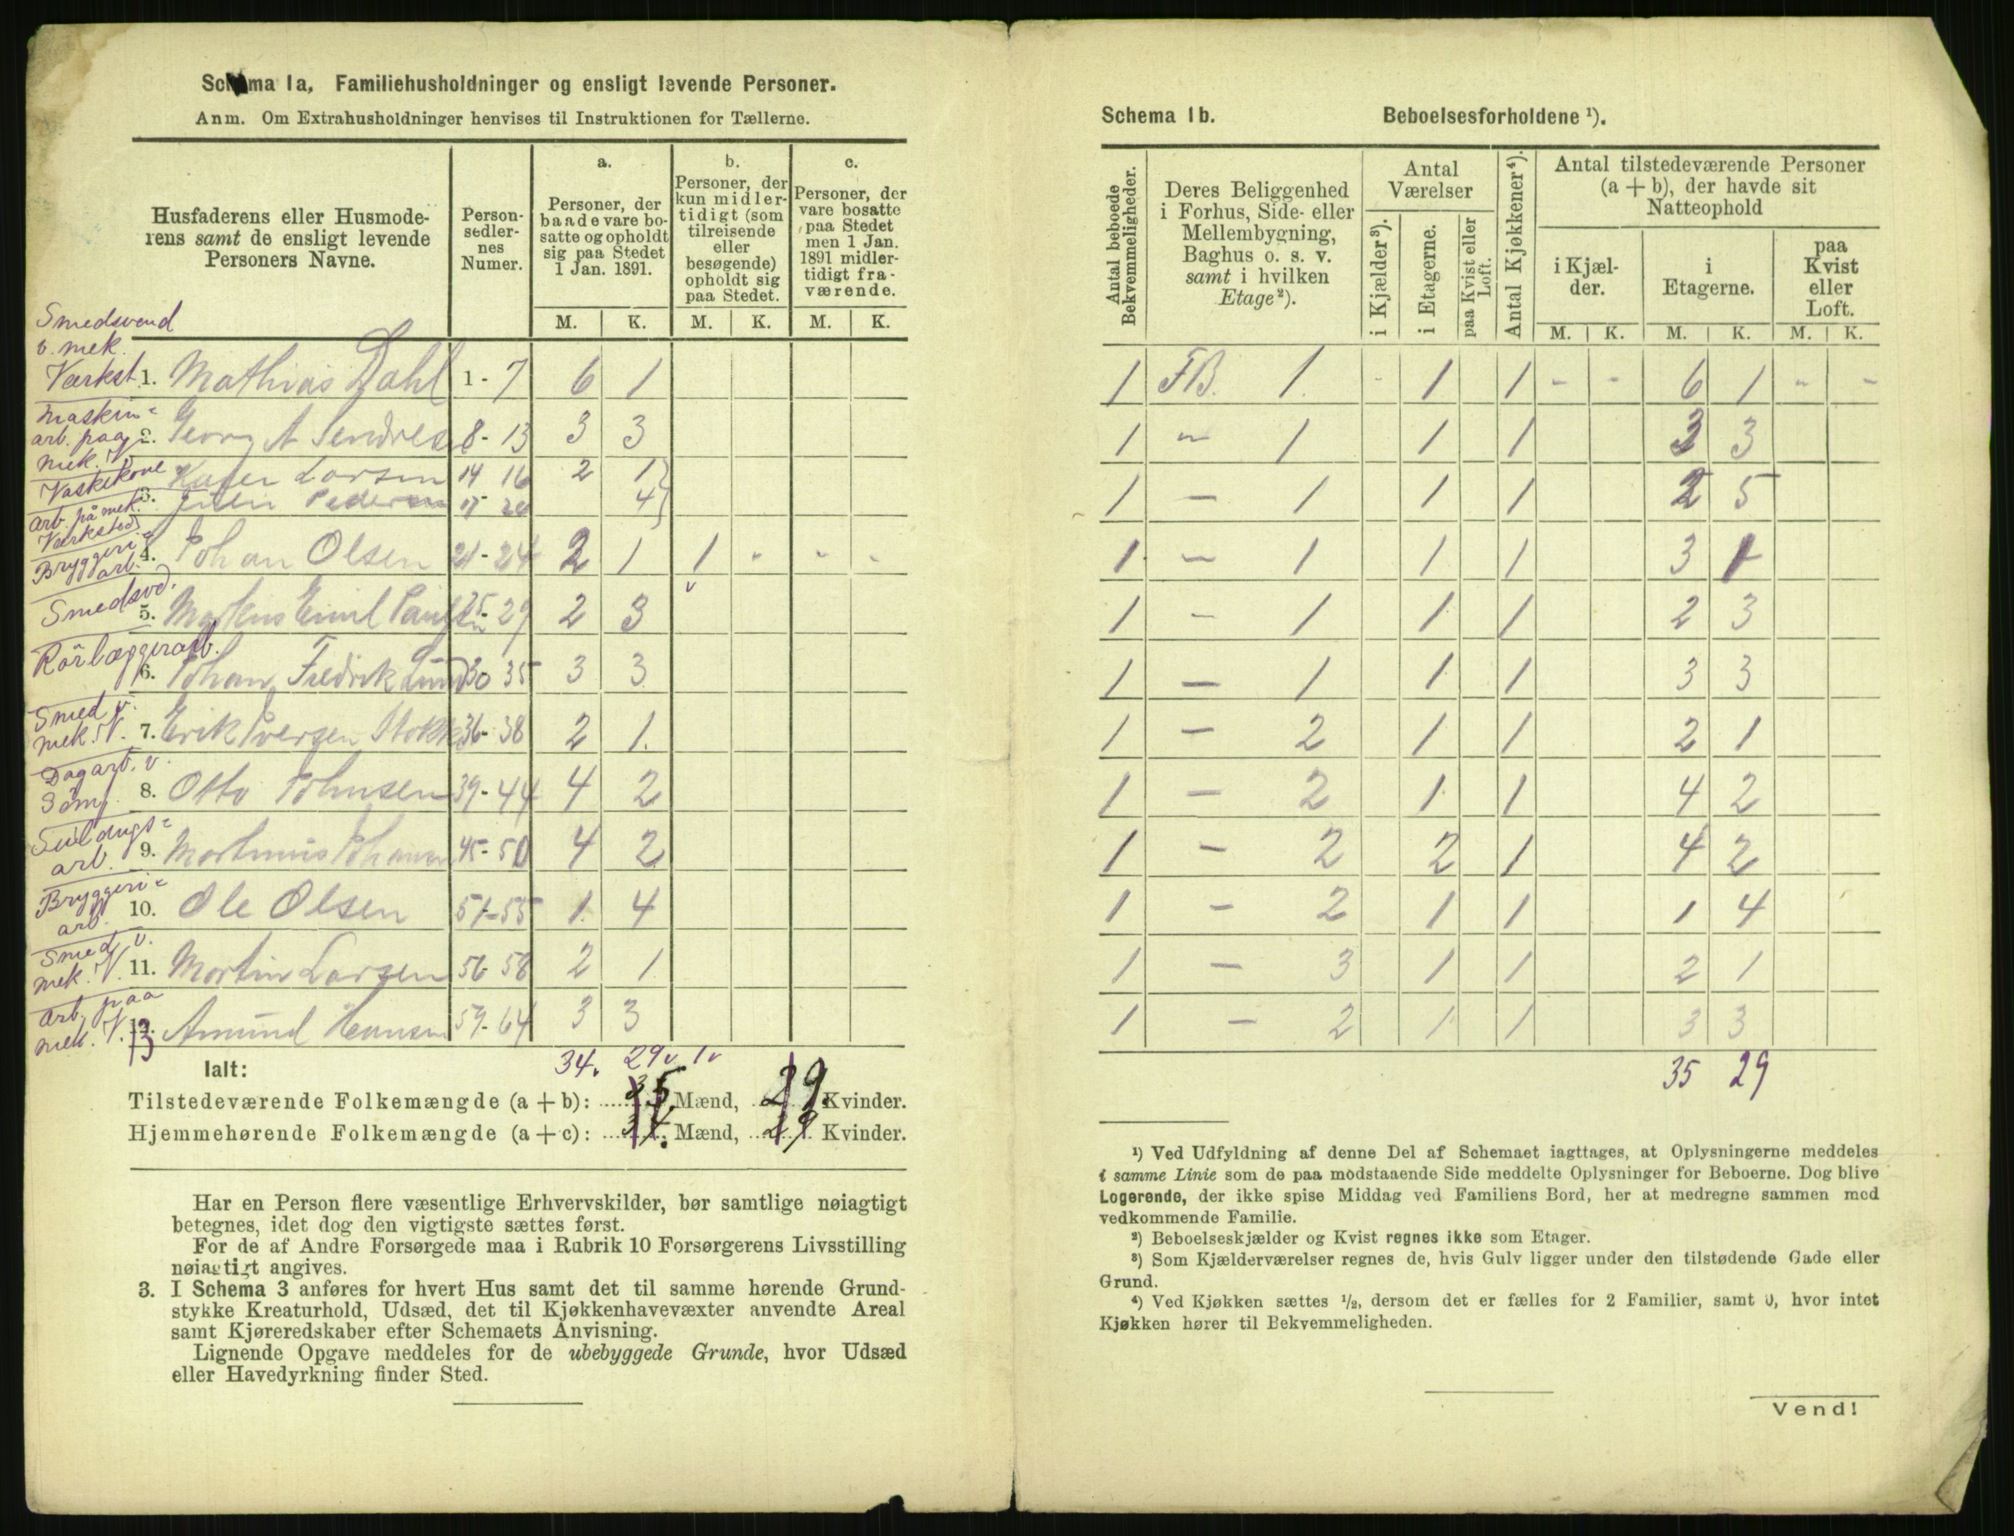 Schema 1a, Familiehusholdninger og ensligt levende Personer.
Anm. Om Extrahusholdninger henvises til Instruktionen for Tællerne.
Husfaderens eller Husmode-
rens samt de ensligt levende
Personers Navne.
Person-
sedler-
nes
Numer.
a.
Personer, der
baade vare bo-
satte og opholdt
sig paa Stedet
1 Jan. 1891.
b.
Personer, der
kun midler-
tidigt (som
tilreisende
eller
besøgende)
opholdt sig
paa Stedet.
c.
Personer, der
vare bosatte
paa Stedet
men 1 Jan.
1891 midler-
tidigt fra-
værende.
M. K. M. K. M. K.
Smedsvend
v. mek.
Værkst. 1. Mathias Dahl 1 - 7 6 1
Maskin-
arb. paa
mek. V. 2. Georg A 8 - 13 3 3
Vaskekone Karen Larsen 14 16 2 1
3. Pedersen 17 20 4
arb. på mek.
Værksted
Bryggeri-
arb. 4. Johan Olsen 21 - 24 2 1 1 - - -
Smedsvd. 5. Markus Emil 25 - 29 2 3
Rörlæggerarb.
6. Johan Fredrik Lund 30 35 3 3
Smed v.
mek. V. 7. Erik Iversen 36 - 38 2 1.
Dagarb. v.
8. Otto Johnsen 39 - 44 4 2
arb. 9. Martinius Johansen 45 - 50 4 2
Bryggeri-
arb. 10. Ole Olsen 51 - 55 1. 4
Smed v.
mek. V. 11. Martin Larsen 56 58 2 1
Arb. paa
mek. V. 13 Amund Hansen 59 - 64 3 3
Ialt: 34. 29 v 1 v
Tilstedeværende Folkemængde (a + b): 35. Mænd, 29. Kvinder.
Hjemmehørende Folkemængde (a + c): 34. Mænd, 29 Kvinder.
Har en Person flere væsentlige Erhvervskilder, bør samtlige nøiagtigt
betegnes, idet dog den vigtigste sættes først.
For de af Andre Forsørgede maa i Rubrik 10 Forsørgerens Livsstilling
nøiagtigt angives.
3. I Schema 3 anføres for hvert Hus samt det til samme hørende Grund-
stykke Kreaturhold, Udsæd, det til Kjøkkenhavevæxter anvendte Areal
samt Kjøreredskaber efter Schemaets Anvisning.
Lignende Opgave meddeles for de ubebyggede Grunde, hvor Udsæd
eller Havedyrkning finder Sted.
Schema 1b. Beboelsesforholdene ¹).
Antal beboede
Bekvemmeligheder.
Deres Beliggenhed
i Forhus, Side- eller
Mellembygning,
Baghus o. s. v.
samt i hvilken
Etage ²).
Antal
Værelser
i Kjælder ³).
i Etagerne.
paa Kvist eller
Loft.
Antal Kjøkkener ⁴).
Antal tilstedeværende Personer
(a + b), der havde sit
Natteophold
i Kjæl-
der.
i
Etagerne.
paa
Kvist
eller
Loft.
M. K. M. K. M. K.
1 FB. 1. - 1 1 - - 6 1 - -
1 - 1 1 1 3 3
1 - 1 1 1 2 5
1 - 1 1 1 3 1
1 - 1 1 1 2 3
1 - 1 1 1 3 3
1 - 2 1 1 2 1
1 - 2 1 1 4 2
1 - 2 2 1 4 2
1 - 2 1 1 1 4
1 - 3 1 1 2 1
1 - 2 1 1 3 3
35 29
¹) Ved Udfyldning af denne Del af Schemaet iagttages, at Oplysningerne meddeles
i samme Linie som de paa modstaaende Side meddelte Oplysninger for Beboerne. Dog blive
Logerende, der ikke spise Middag ved Familiens Bord, her at medregne sammen med
vedkommende Familie.
²) Beboelseskjælder og Kvist regnes ikke som Etager.
³) Som Kjælderværelser regnes de, hvis Gulv ligger under den tilstødende Gade eller
Grund.
⁴) Ved Kjøkken sættes ½, dersom det er fælles for 2 Familier, samt 0, hvor intet
Kjøkken hører til Bekvemmeligheden.
Vend!